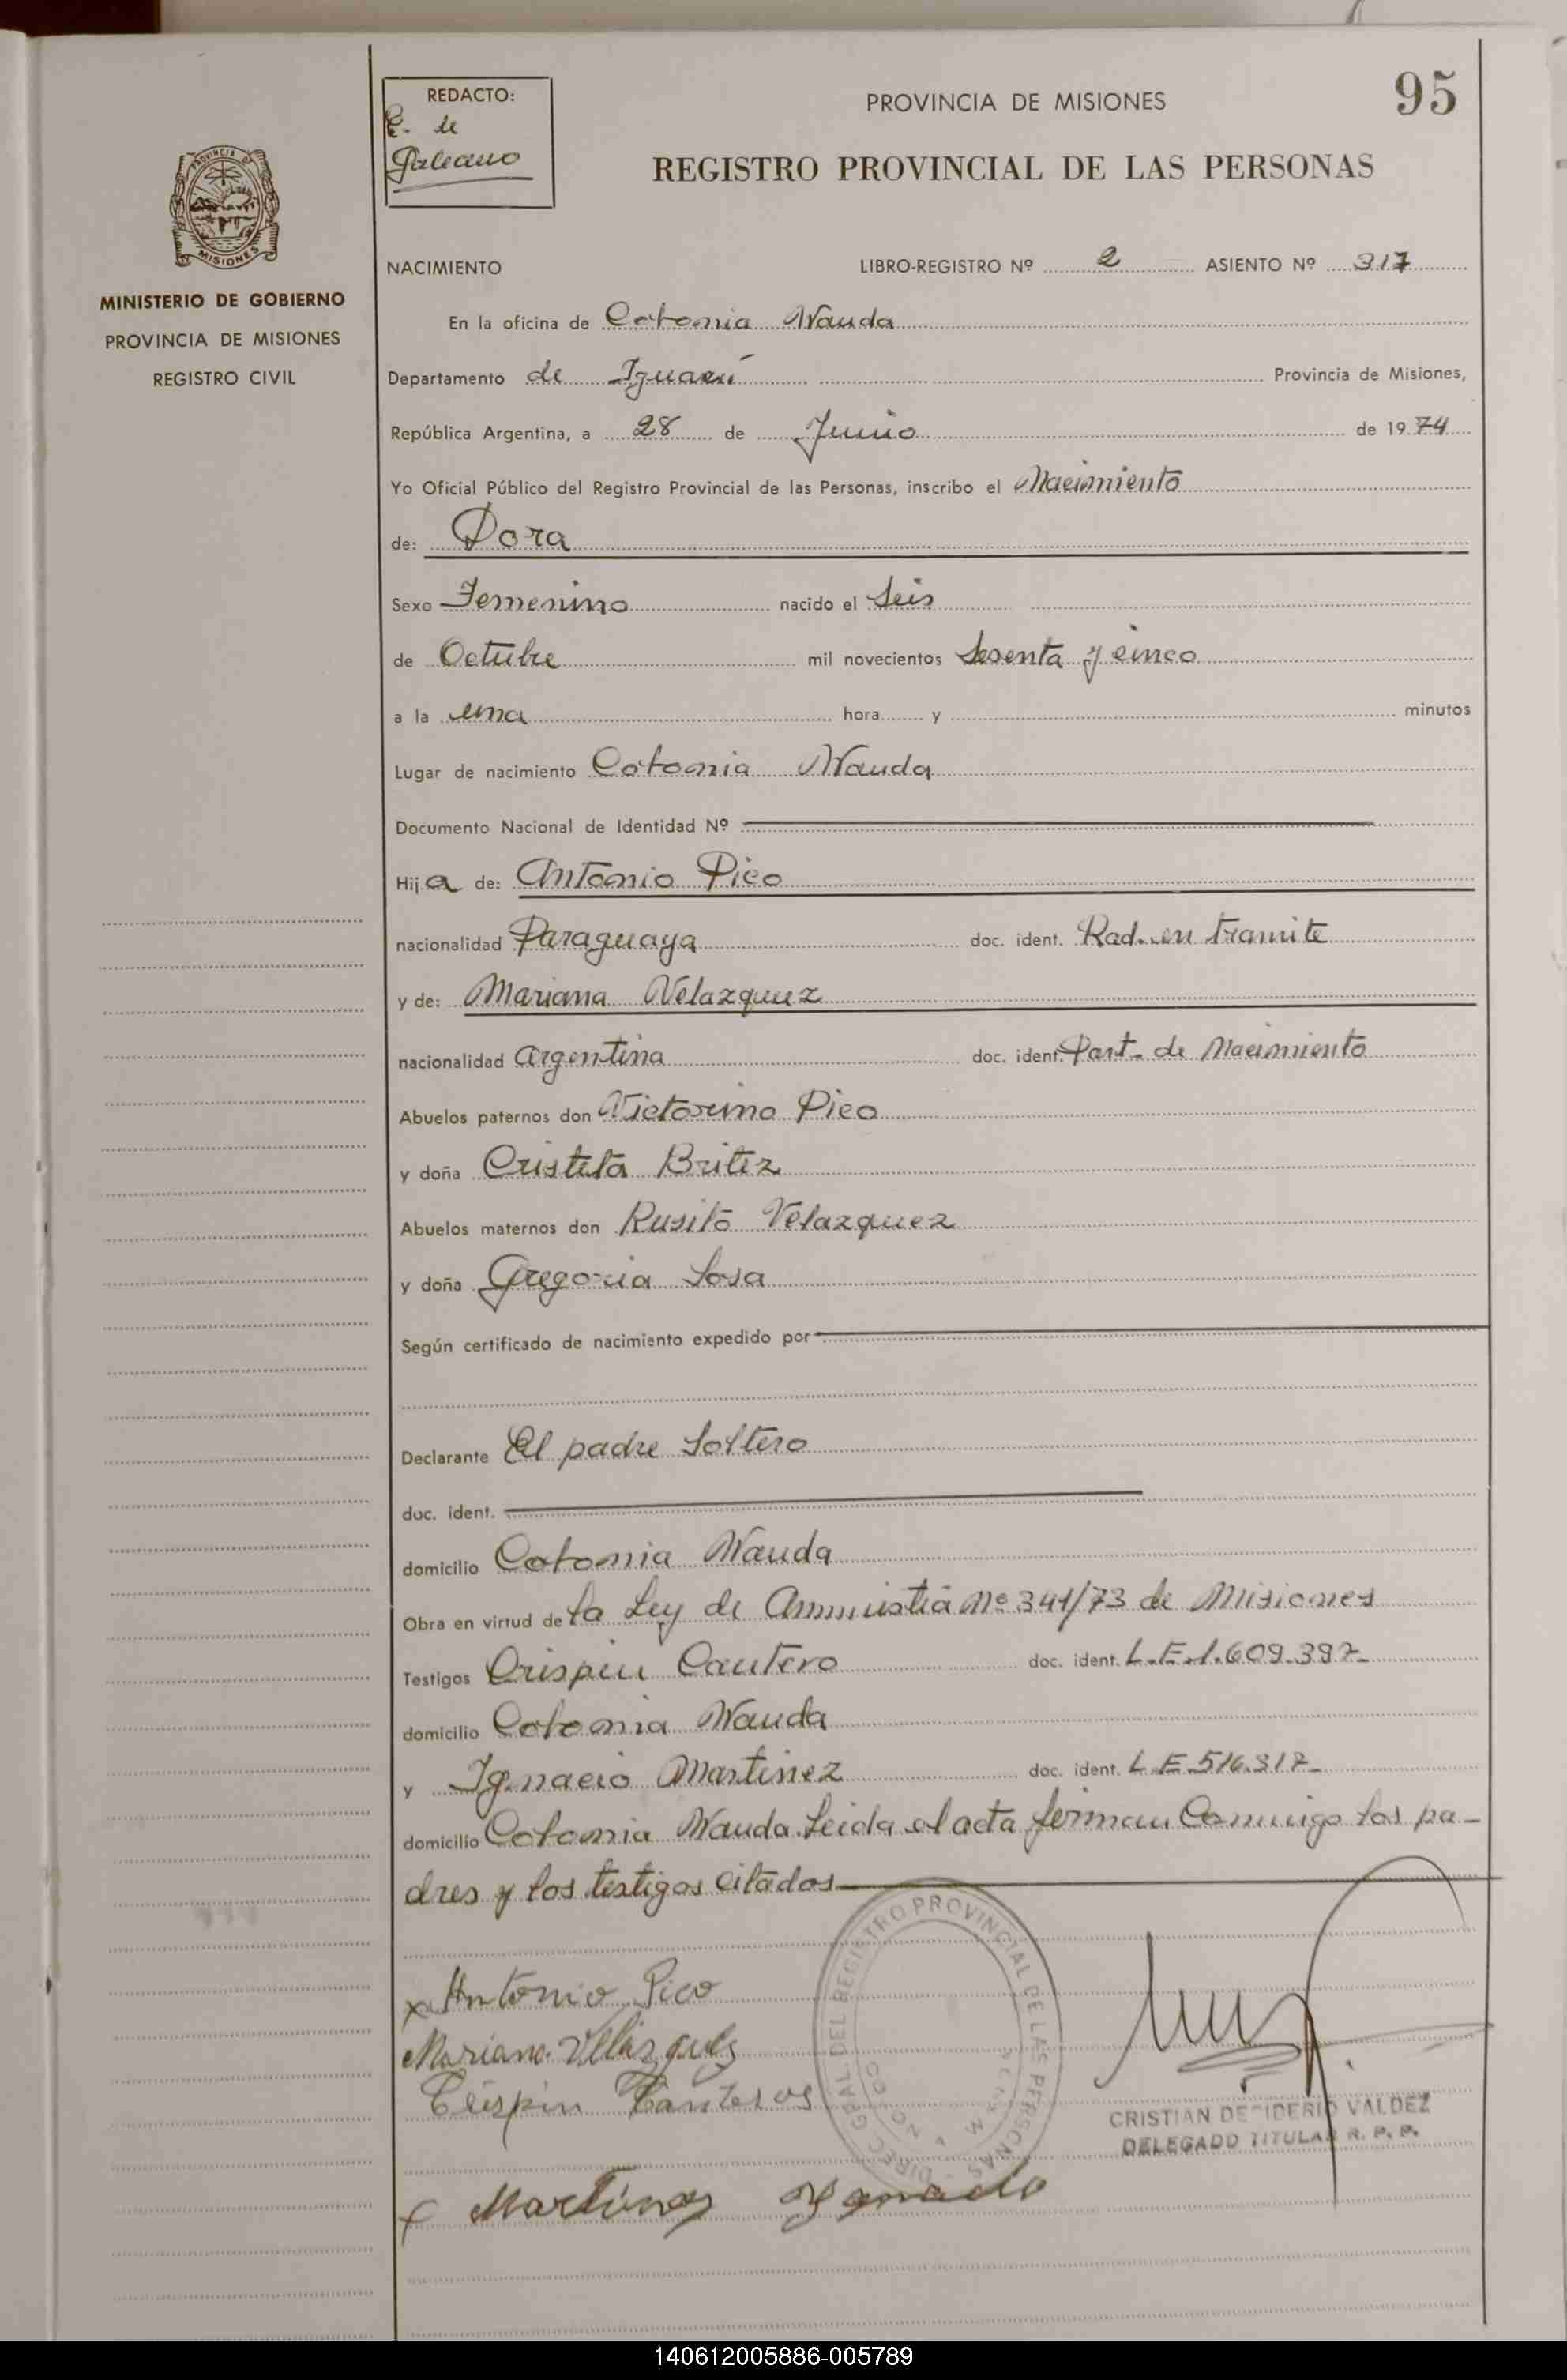 REDACTO:
E. de
Galeano
PROVINCIA DE MISIONES
95
REGISTRO PROVINCIAL DE LAS PERSONAS
PROVINCIA DE
MISIONES
MINISTERIO DE GOBIERNO
PROVINCIA DE MISIONES
REGISTRO CIVIL
NACIMIENTO LIBRO-REGISTRO Nº 2 ASIENTO Nº 317
En la oficina de Colonia Wanda
Departamento de Iguazú Provincia de Misiones,
República Argentina, a 28 de Junio de 1974
Yo Oficial Público del Registro Provincial de las Personas, inscribo el Nacimiento
de: Dora
Sexo Femenino nacido el Seis
de Octubre mil novecientos Sesenta y cinco
a la una hora y minutos
Lugar de nacimiento Colonia Wanda
Documento Nacional de Identidad Nº
Hija de: Antonio Pico
nacionalidad Paraguaya doc. ident. Rad. en tramite
y de: Mariana Velazquez
nacionalidad Argentina doc. ident. Part. de Nacimiento
Abuelos paternos don Victorino Pico
y doña Cristela Britez
Abuelos maternos don Rusito Velazquez
y doña Gregoria Sosa
Según certificado de nacimiento expedido por
Declarante El padre Soltero
doc. ident.
domicilio Colonia Wanda
Obra en virtud de la Ley de Amnistia Nº 341/73 de Misiones
Testigos Crispin Cantero doc. ident. L.E.1.609.397-
domicilio Colonia Wanda
y Ignacio Martinez doc. ident. L.E.516.317-
domicilio Colonia Wanda. Leida el acta firman Conmigo los pa-
dres y los testigos citados
x Antonio Pico
Mariana Velazquez
Crispin Canteros
x Martinez Ygnacio
DIREC GRAL DEL REGISTRO PROVINCIAL DE LAS PERSONAS
CRISTIAN DESIDERIO VALDEZ
DELEGADO TITULAR R. P. P.
140612005886-005789